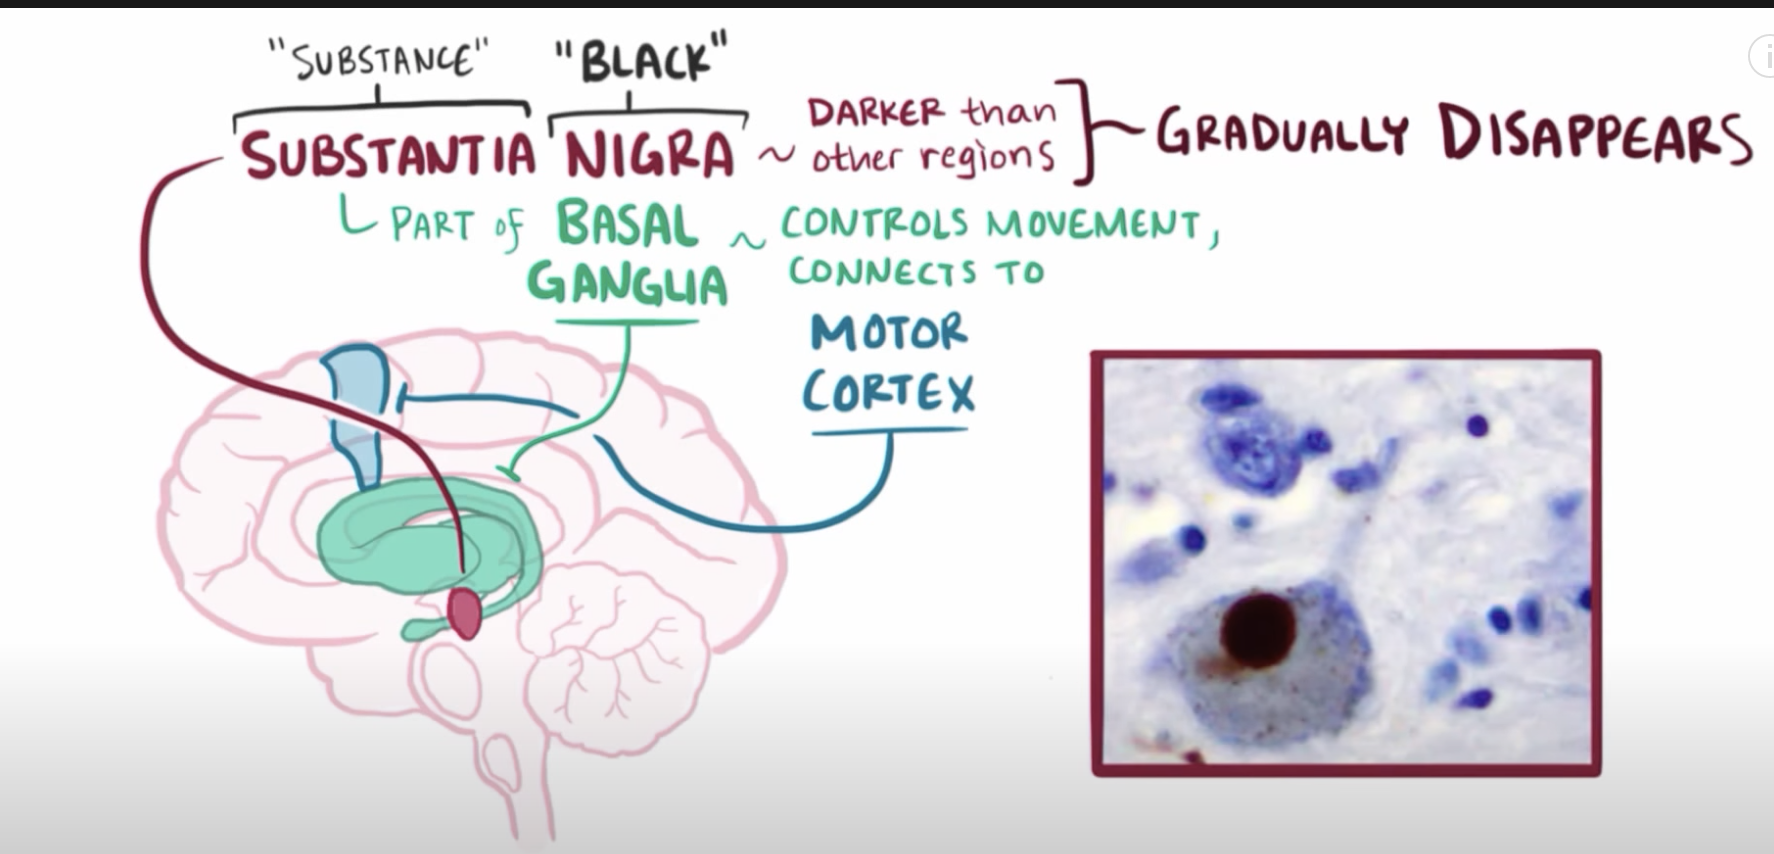 "SUBSTANCE" "BLACK"
SUBSTANTIA NIGRA ~ DARKER than
other regions
GRADUALLY DISAPPEARS
PART of BASAL
GANGLIA
~ CONTROLS MOVEMENT,
CONNECTS TO
MOTOR
CORTEX
i